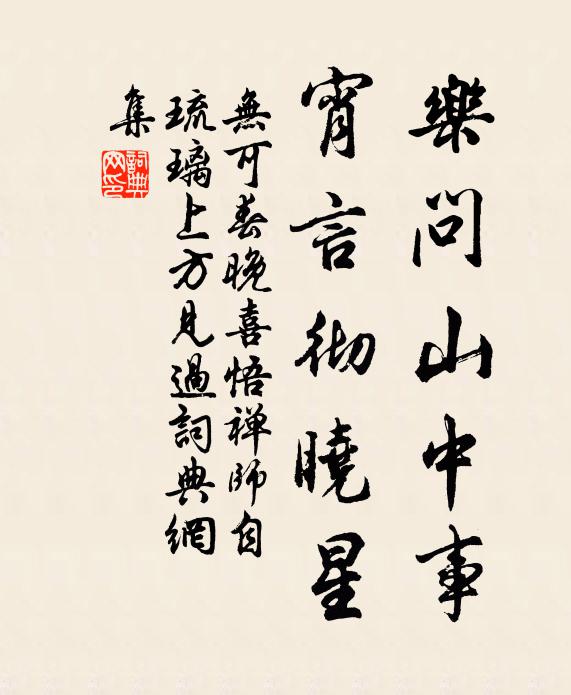 樂問山中事
宵言彻曉星
無可春晚喜悟禅師自
琉璃上方見過詞典網
集
詞典
网印